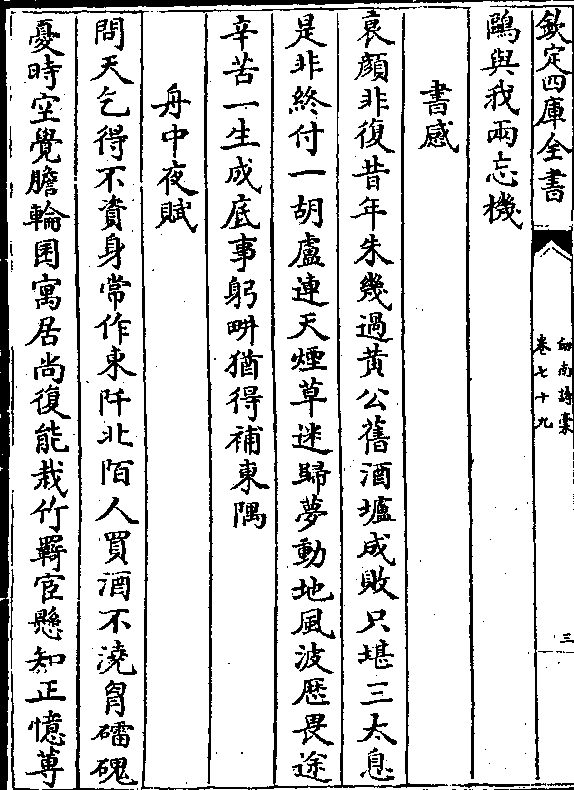 欽定四庫全書
劍南詩槀
卷七十九
三
鷗與我兩忘機
書感
衰顔非復昔年朱幾過黄公舊酒壚成敗只堪三太息
是非終付一胡盧連天煙草迷歸夢動地風波歴畏途
辛苦一生成底事躬畊猶得補東隅
舟中夜賦
問天乞得不資身常作東阡北陌人買酒不澆胷磥磈
憂時空覺膽輪囷寓居尚復能栽竹羇宦懸知正憶蓴